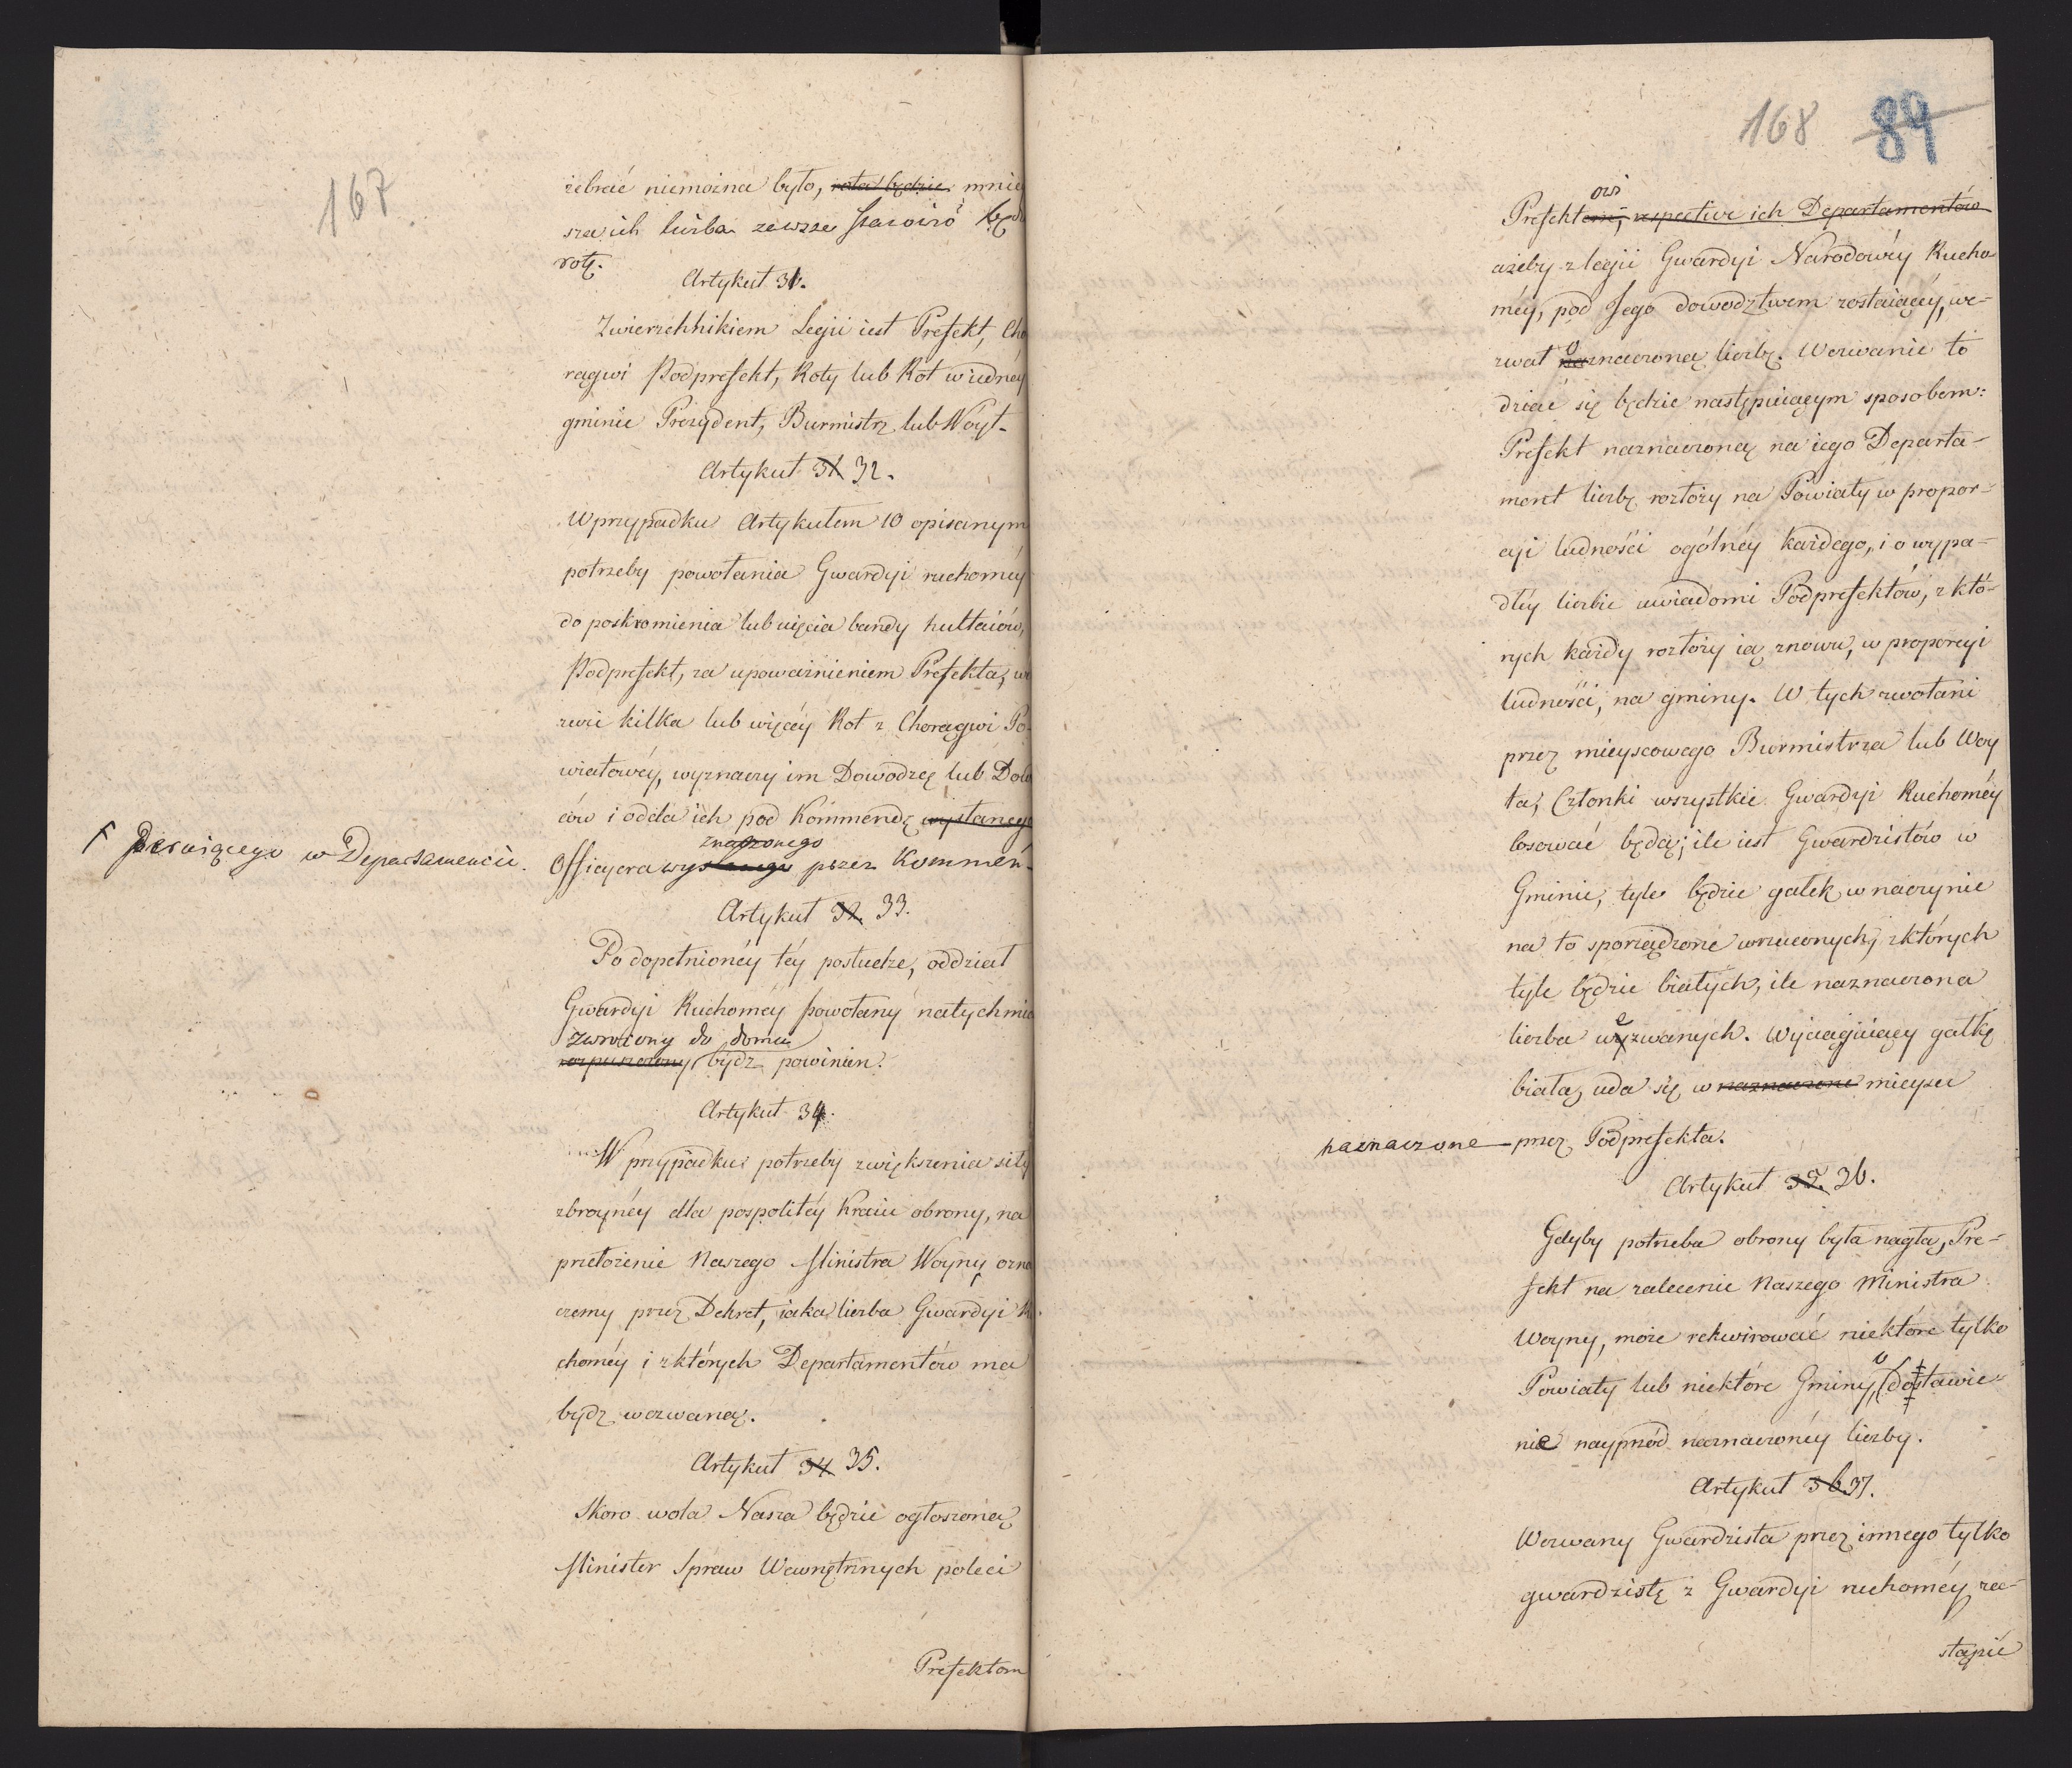 167
zebrać niemożna było, rota będzie mniey
sza ich liczba zawsze stanowić będzie
rotę.
Artykuł 31.
Zwierzchnikiem Legii iest Prefekt, Cho
rągwi Podprefekt, Roty lub Rot w iedney
gminie Prezydent, Burmistrz lub Wóyt.
Artykuł 31 32.
W przypadku Artykułem 10 opisanym
potrzeby powołania Gwardyi ruchoméy
do poskromienia lub uięcia bandy hultaiów,
Podprefekt, za upoważnieniem Prefekta, we
zwie kilka lub więcéy Rot z Chorągwi Po-
wiatowéy, wyznaczy im Dowodzcę lub Dow
ców i odda ich pod Kommendę wysłanego
znaczonego
Officyera wysłanego przez Kommen-
Γ Deruiącego w Departamencie.
Artykuł 32. 33.
Po dopełnionéy téy posłudze, oddział
Gwardyi Ruchoméy powołany natychmia
zwrócony do domu
rozpuszczony bydź powinien.
Artykuł 34.
W przypadku potrzeby zwiększenia siły
zbroynéy dla pospolitéy Kraiu obrony, na
przełożenie Naszego Ministra Woyny ozna
czemy przez Dekret, iaka liczba Gwardyi Ru
choméy i z których Departamentów ma
bydź wezwaną.
Artykuł 34 35.
Skoro wola Nasza będzie ogłoszoną
Minister Spraw Wewnętrznych poleci
Prefektom
168 89
owi
Prefektom, respective ich Departamentów
ażeby z legii Gwardyi Narodowéy Rucho
méy, pod Jego dowodztwem zostaiącéy, we-
zwał naznaczoną liczbę. Wezwanie to
dziać się będzie następuiącym sposobem:
Prefekt naznaczoną na iego Departa-
ment liczbę rozłoży na Powiaty w propor-
cyi ludności ogólnéy każdego, i o wypa-
dłéy liczbie uwiadomi Podprefektów, z któ-
rych każdy rozłoży ią znowu, w proporcyi
ludności, na gminy. W tych zwołani
przez mieyscowego Burmistrza lub Woy
ta, Członki wszystkie Gwardyi Ruchoméy
losować będą; ile iest Gwardzistów w
Gminie, tyle będzie gałek w naczynie
na to sporządzone wrzuconych, z których
tyle będzie białych, ile naznaczona
e
liczba wyzwanych. Wyciągaiący gałkę
białą, uda się w naznaczone mieysce
naznaczone przez Podprefekta.
Artykuł 35. 36.
Gdyby potrzeba obrony była nagłą, Pre-
fekt na zalecenie Naszego Ministra
Woyny, może rekwirować niektóre tylko
Powiaty lub niektóre Gminy, o dostawie
nie nayprzód naznaczonéy liczby.
Artykuł 36 37.
Wezwany Gwardzista przez innego tylko
gwardzistę z Gwardyi ruchoméy za-
stąpić